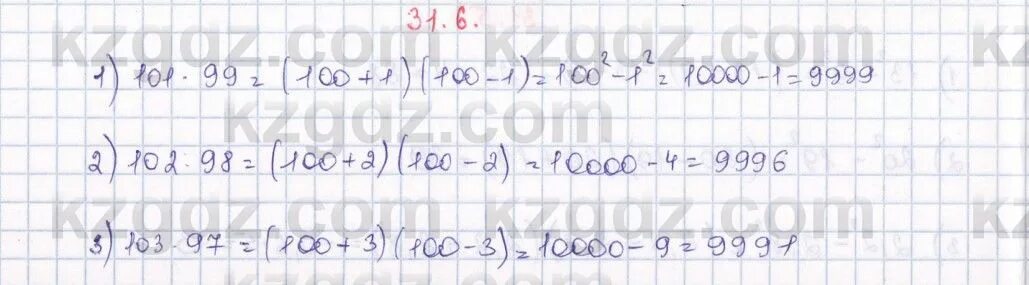 31.6.
1) 101 · 99 = (100 + 1)(100 - 1) = 100² - 1² = 10000 - 1 = 9999
2) 102 · 98 = (100 + 2)(100 - 2) = 10000 - 4 = 9996
3) 103 · 97 = (100 + 3)(100 - 3) = 10000 - 9 = 9991
kzgdz.com kzgdz.com
kzgdz.com
kzgdz.com kzgdz.com